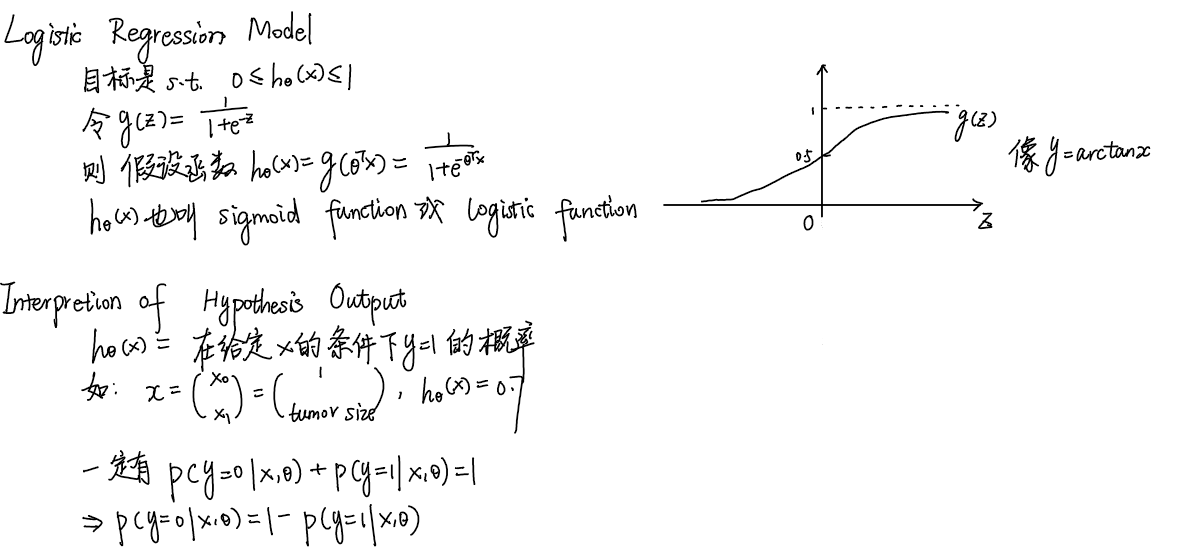 Logistic Regression Model
目标是 s.t. 0≤hθ(x)≤1
令 g(z)= 1/(1+e^-z)
则 假设函数 hθ(x)= g(θᵀx) = 1/(1+e^-θᵀx)
hθ(x)也叫 sigmoid function 或 logistic function
1
g(z)
0.5
像 y=arctanx
0
z
Interpretion of Hypothesis Output
hθ(x) = 在给定x的条件下y=1的概率
如: x = (x₀ x₁) = (1 tumor size), hθ(x)=0.7
一定有 p(y=0|x,θ)+p(y=1|x,θ)=1
⇒ p(y=0|x,θ)=1-p(y=1|x,θ)